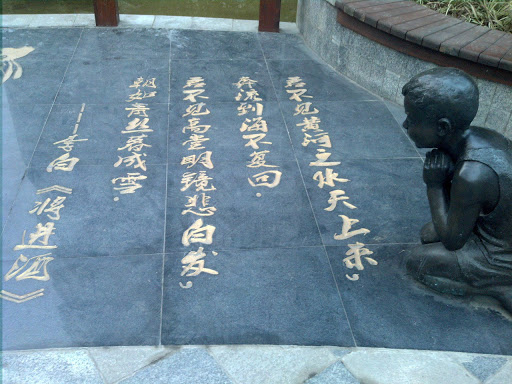 君不见黄河之水天上来。
奔流到海不复回.
君不见高堂明镜悲白发。
朝如青丝暮成雪.
——李白《将进酒》